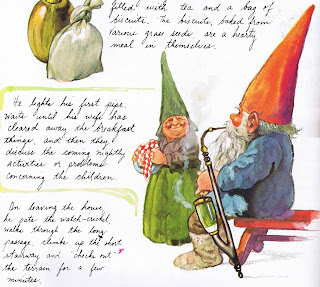 filled with tea and a bag of
biscuits. The biscuits, baked from
various grass seeds, are a hearty
meal in themselves.
He lights his first pipe,
waits until his wife has
cleared away the breakfast
things, and then they
discuss the coming nightly
activities or problems
concerning the children.
On leaving the house,
he pats the watch-cricket,
walks through the long
passage, climbs up the short
stairway and "checks out"
the terrain for a few
minutes.